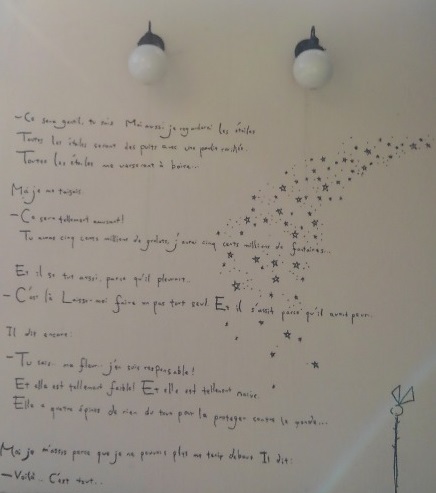 - Ce sera gentil, tu sais. Moi aussi je regarderai les étoiles
Toutes les étoiles seront des puits avec une poulie rouillée.
Toutes les étoiles me verseront à boire...
Moi je me taisais.
- Ce sera tellement amusant!
Tu auras cinq cents millions de grelots, j'aurai cinq cents millions de fontaines...
Et il se tut aussi, parce qu'il pleurait.
- C'est là. Laisse-moi faire un pas tout seul. Et il s'assit parce qu'il avait peur.
Il dit encore:
- Tu sais... ma fleur... j'en suis responsable!
Et elle est tellement faible! Et elle est tellement naïve.
Elle a quatre épines de rien du tout pour la protéger contre le monde...
Moi je m'assis parce que je ne pouvais plus me tenir debout. Il dit:
- Voilà... C'est tout...